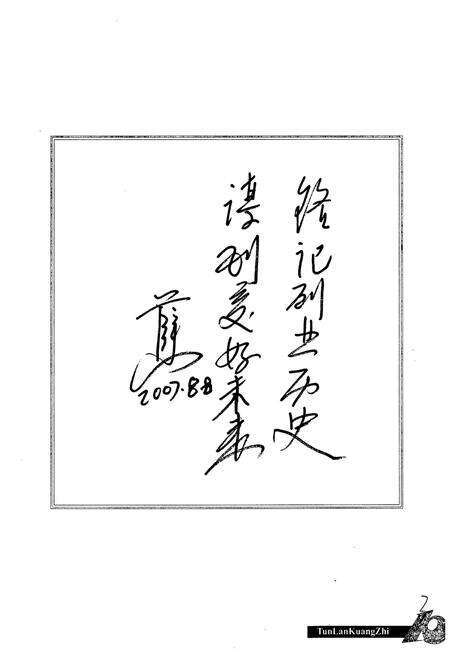 铭记创业历史
谋划美好未来
2007.8.8
TunLanKuangZhi